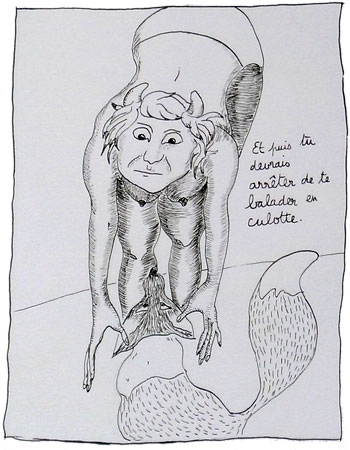 Et puis tu
devrais
arrêter de te
balader en
culotte.